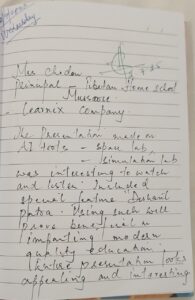 Mrs Chodon
Principal - Tibetan Home School
Mussoorie
- Learnix Company.
The Presentation made on
AI tools - Space lab
- Simulation lab
was interesting to watch
and listen. Included
special feature
. Using such will
prove beneficial in
imparting modern
quality education.
presentation looks
appealing and interesting